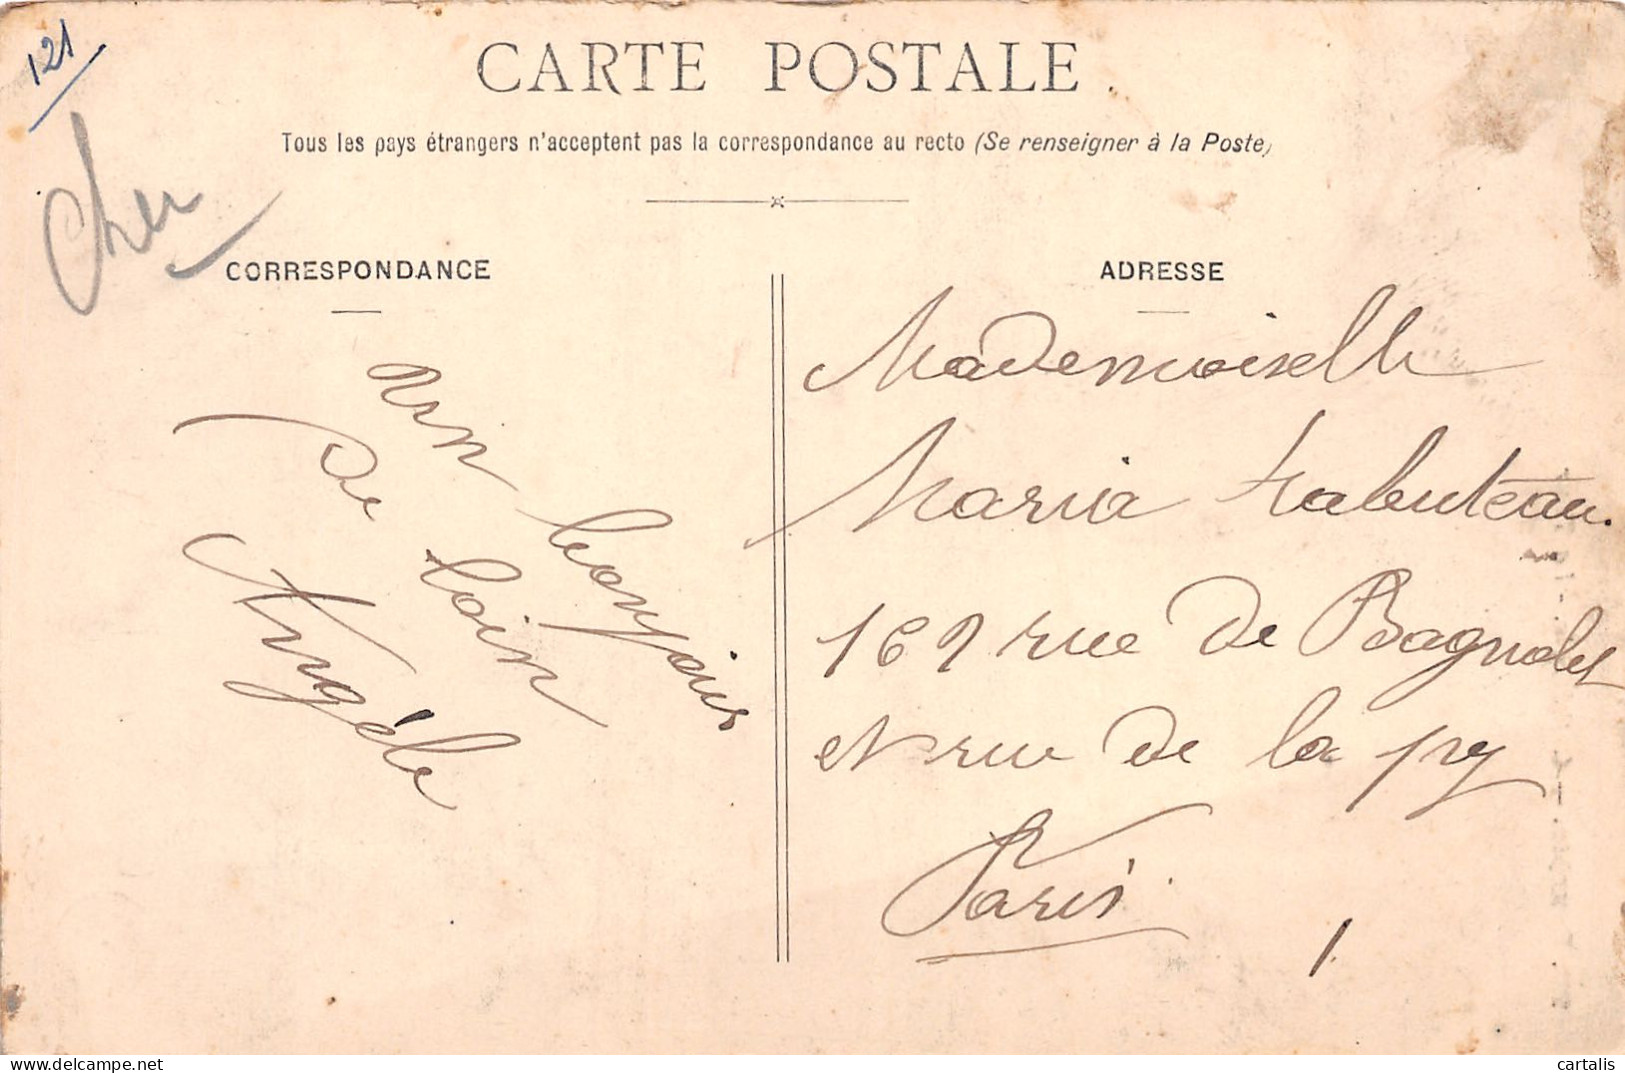 121
Cher
CARTE POSTALE
Tous les pays étrangers n'acceptent pas la correspondance au recto (Se renseigner à la Poste)
CORRESPONDANCE
un bonjour
de loin
Angèle
ADRESSE
Mademoiselle
Maria Rabuteau.
162 rue de Bagnolet
et rue de la py
Paris
1
cartalis